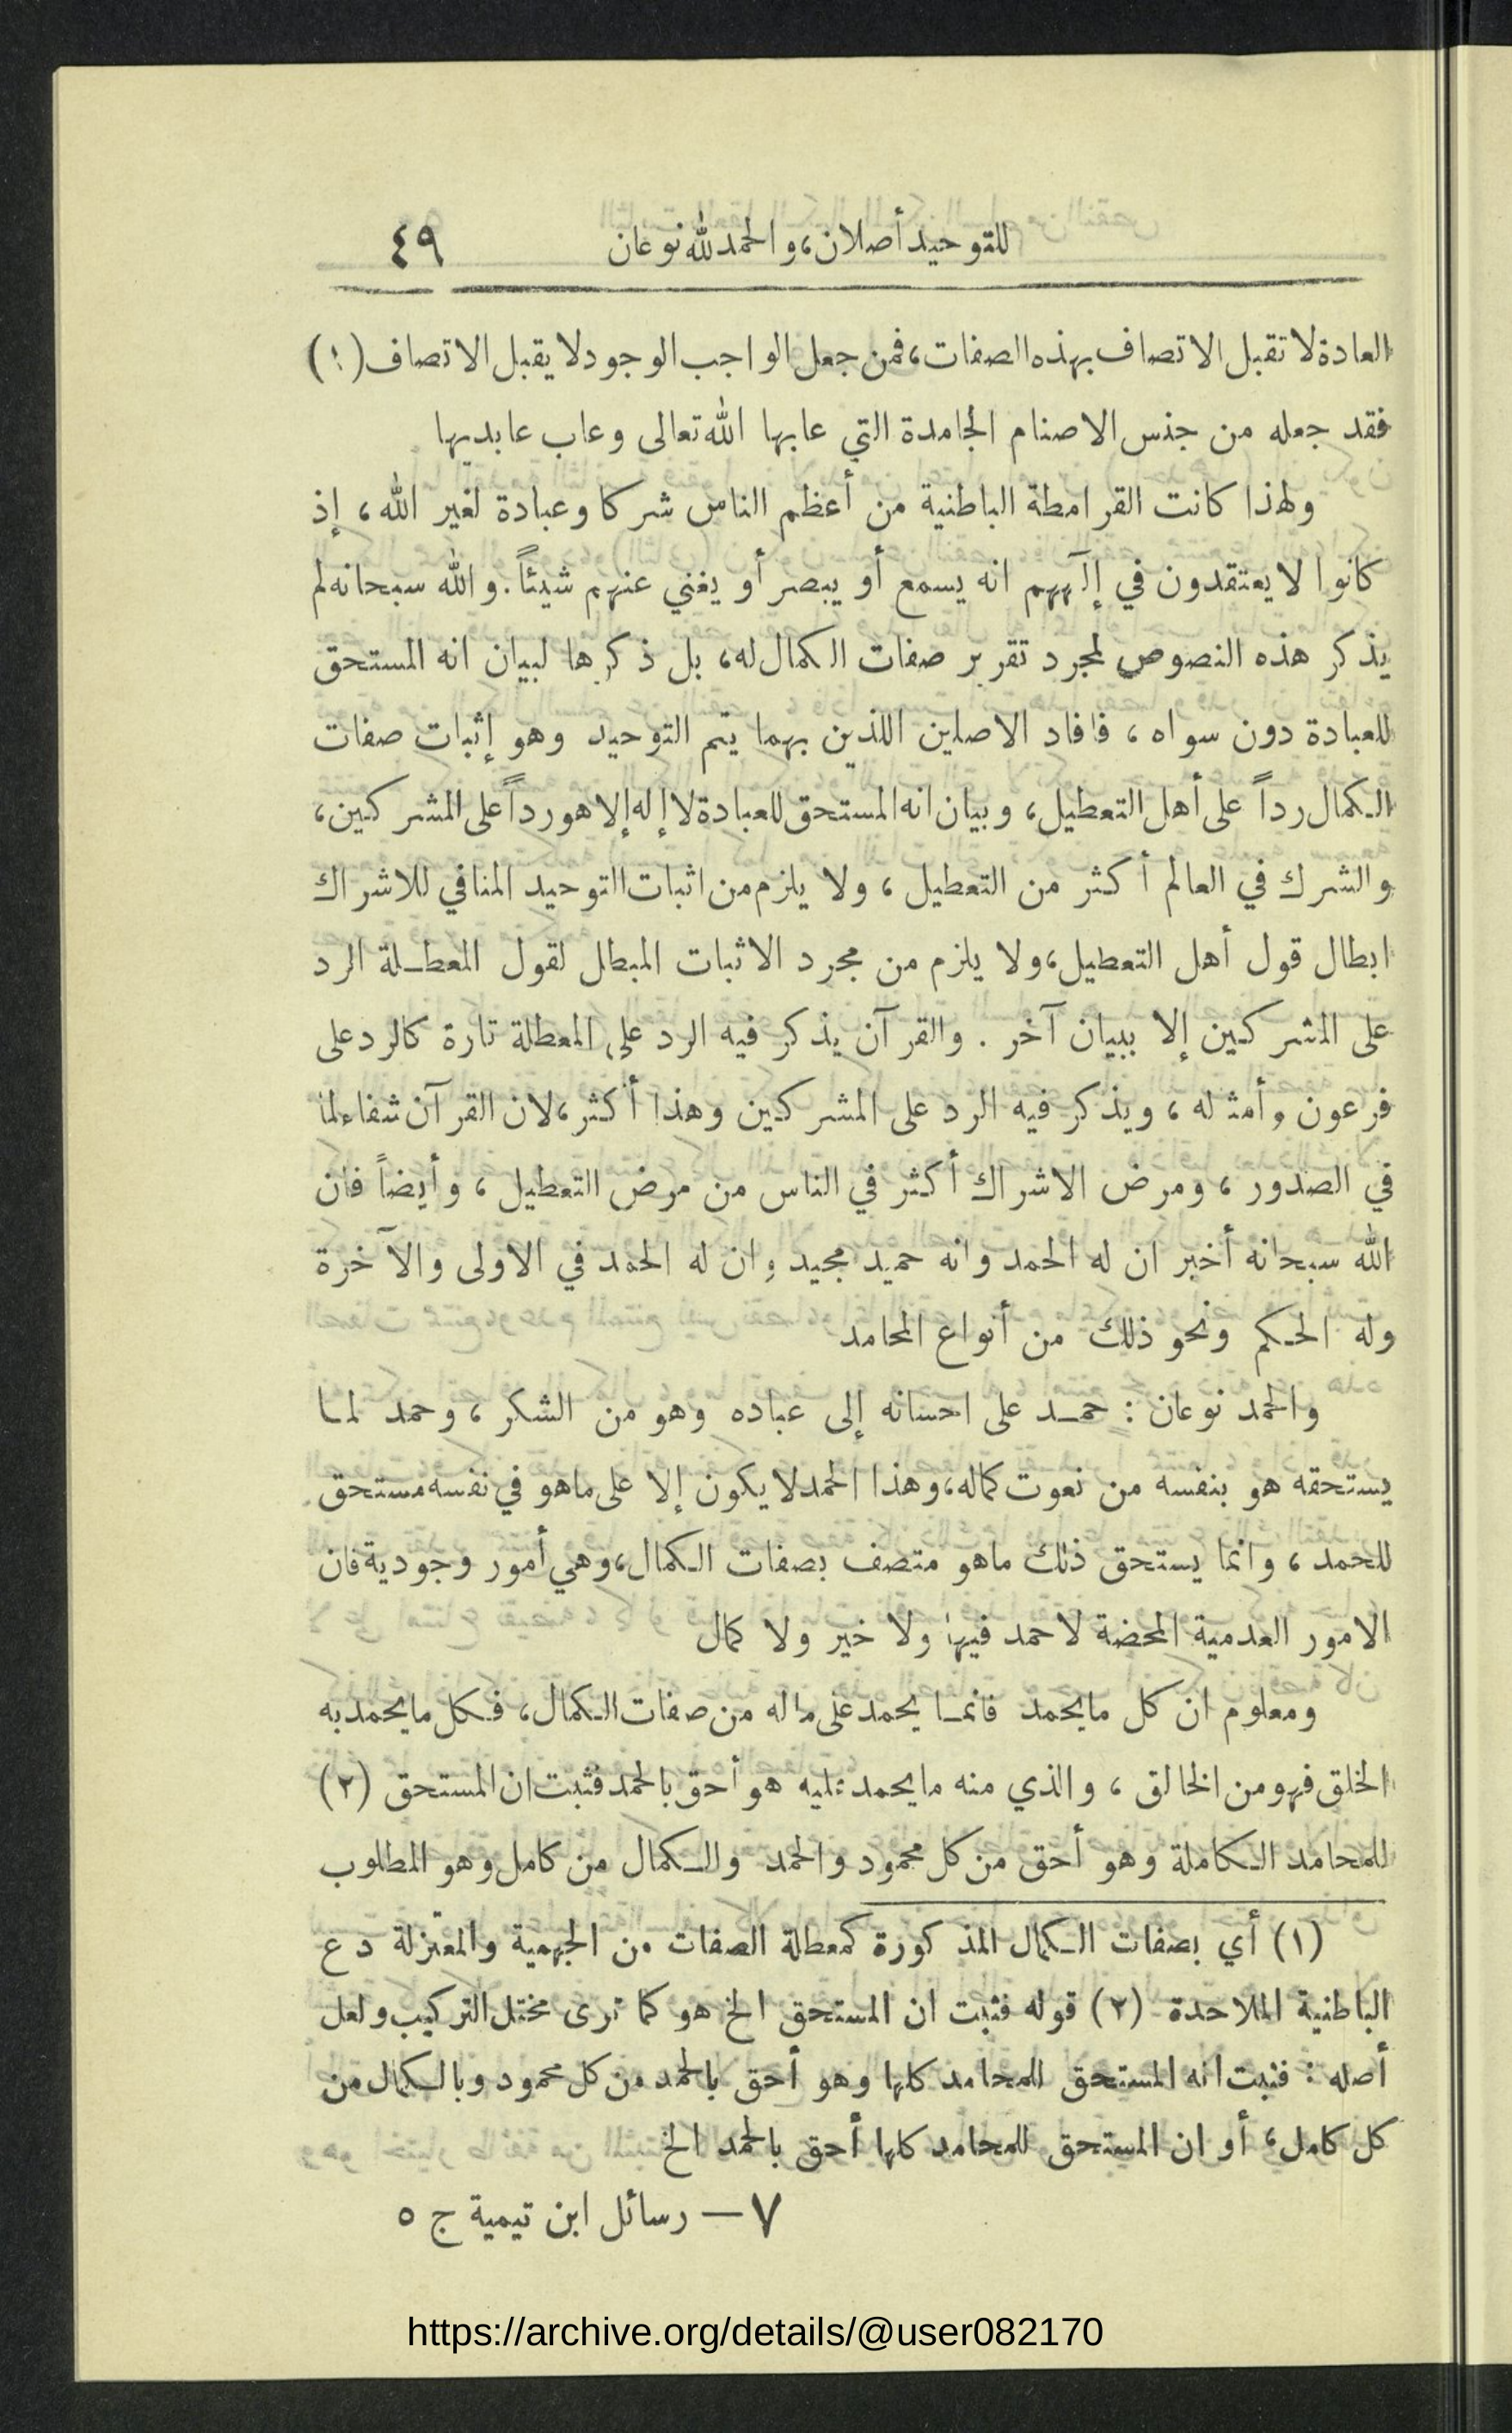 للتوحيد أصلان، والحمد لله نوعان ٤٩
العادة لا تقبل الاتصاف بهذه الصفات، فمن جعل الواجب الوجود لا يقبل الاتصاف (١)
فقد جعله من جنس الاصنام الجامدة التي عابها الله تعالى وعاب عابديها
ولهذا كانت القرامطة الباطنية من أعظم الناس شركا وعبادة لغير الله، إذ
كانوا لا يعتقدون في إلآههم انه يسمع أو يبصر أو يغني عنهم شيئاً. والله سبحانه لم
يذكر هذه النصوص لمجرد تقرير صفات الكمال له، بل ذكرها لبيان انه المستحق
للعبادة دون سواه، فافاد الاصلين اللذين بهما يتم التوحيد وهو إثبات صفات
الكمال رداً على أهل التعطيل، وبيان انه المستحق للعبادة لا إله إلا هو رداً على المشركين،
والشرك في العالم أكثر من التعطيل، ولا يلزم من اثبات التوحيد المنافي للاشراك
ابطال قول أهل التعطيل، ولا يلزم من مجرد الاثبات المبطل لقول المعطلة الرد
على المشركين إلا ببيان آخر. والقرآن يذكر فيه الرد على المعطلة تارة كالرد على
فرعون وأمثاله، ويذكر فيه الرد على المشركين وهذا أكثر، لان القرآن شفاء لما
في الصدور، ومرض الاشراك أكثر في الناس من مرض التعطيل، وأيضاً فان
الله سبحانه أخبر ان له الحمد وانه حميد مجيد وان له الحمد في الاولى والآخرة
وله الحكم ونحو ذلك من أنواع المحامد
والحمد نوعان: حمد على احسانه إلى عباده وهو من الشكر، وحمد لما
يستحقه هو بنفسه من نعوت كماله، وهذا الحمد لا يكون إلا على ماهو في نفسه مستحق
للحمد، وانما يستحق ذلك ماهو متصف بصفات الكمال، وهي أمور وجودية فان
الامور العدمية المحضة لا حمد فيها ولا خير ولا كمال
ومعلوم ان كل مايحمد فانما يحمد على ماله من صفات الكمال، فكل مايحمد به
الخلق فهو من الخالق، والذي منه مايحمد عليه هو أحق بالحمد فثبت ان المستحق (٢)
للمحامد الكاملة وهو أحق من كل محمود والحمد والكمال من كامل وهو المطلوب
(١) أي بصفات الكمال المذكورة كمعطلة الصفات من الجهمية والمعتزلة دع
الباطنية الملاحدة (٢) قوله فثبت ان المستحق الخ هو كما ترى مختل التركيب ولعل
أصله: فثبت انه المستحق للمحامد كلها وهو أحق بالحمد من كل محمود وبالكمال من
كل كامل، أو ان المستحق للمحامد كلها أحق بالحمد الخ
٧ — رسائل ابن تيمية ج ٥
https://archive.org/details/@user082170